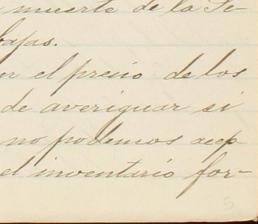 muerte de la Se-
bajas.
el precio de los
de averiguar si
no podemos acep
el inventario for-
5